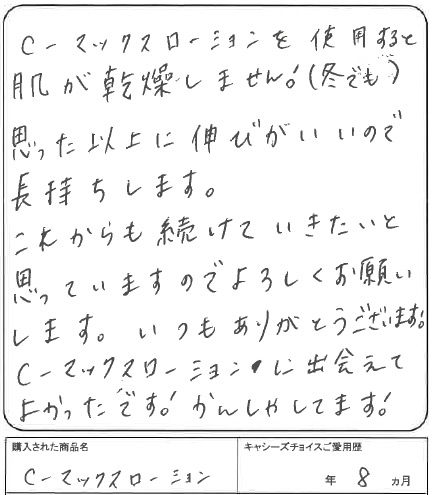 C-マックスローションを使用すると
肌が乾燥しません!(冬でも)
思った以上に伸びがいいので
長持ちします。
これからも続けていきたいと
思っていますのでよろしくお願い
します。いつもありがとうございます!
C-マックスローションに出会えて
よかったです!かんしゃしてます!
購入された商品名
キャシーズチョイスご愛用歴
C-マックスローション
年 8 ヵ月